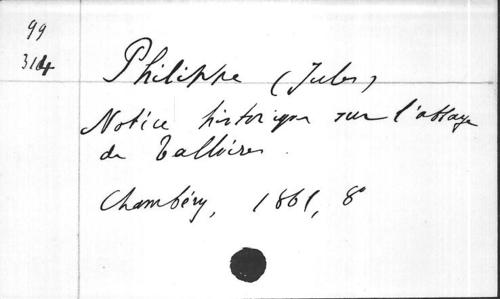 99
314
Philippe (Jules)
Notice historique sur l'abbaye
de Talloires.
Chambéry, 1861, 8°